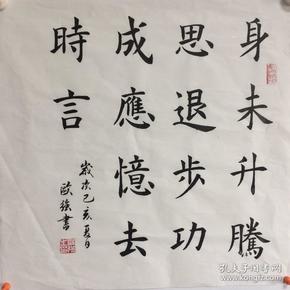 身未升騰
思退步功
成應憶去
時言
歲次己亥夏日
歐強書
孔夫子旧书网